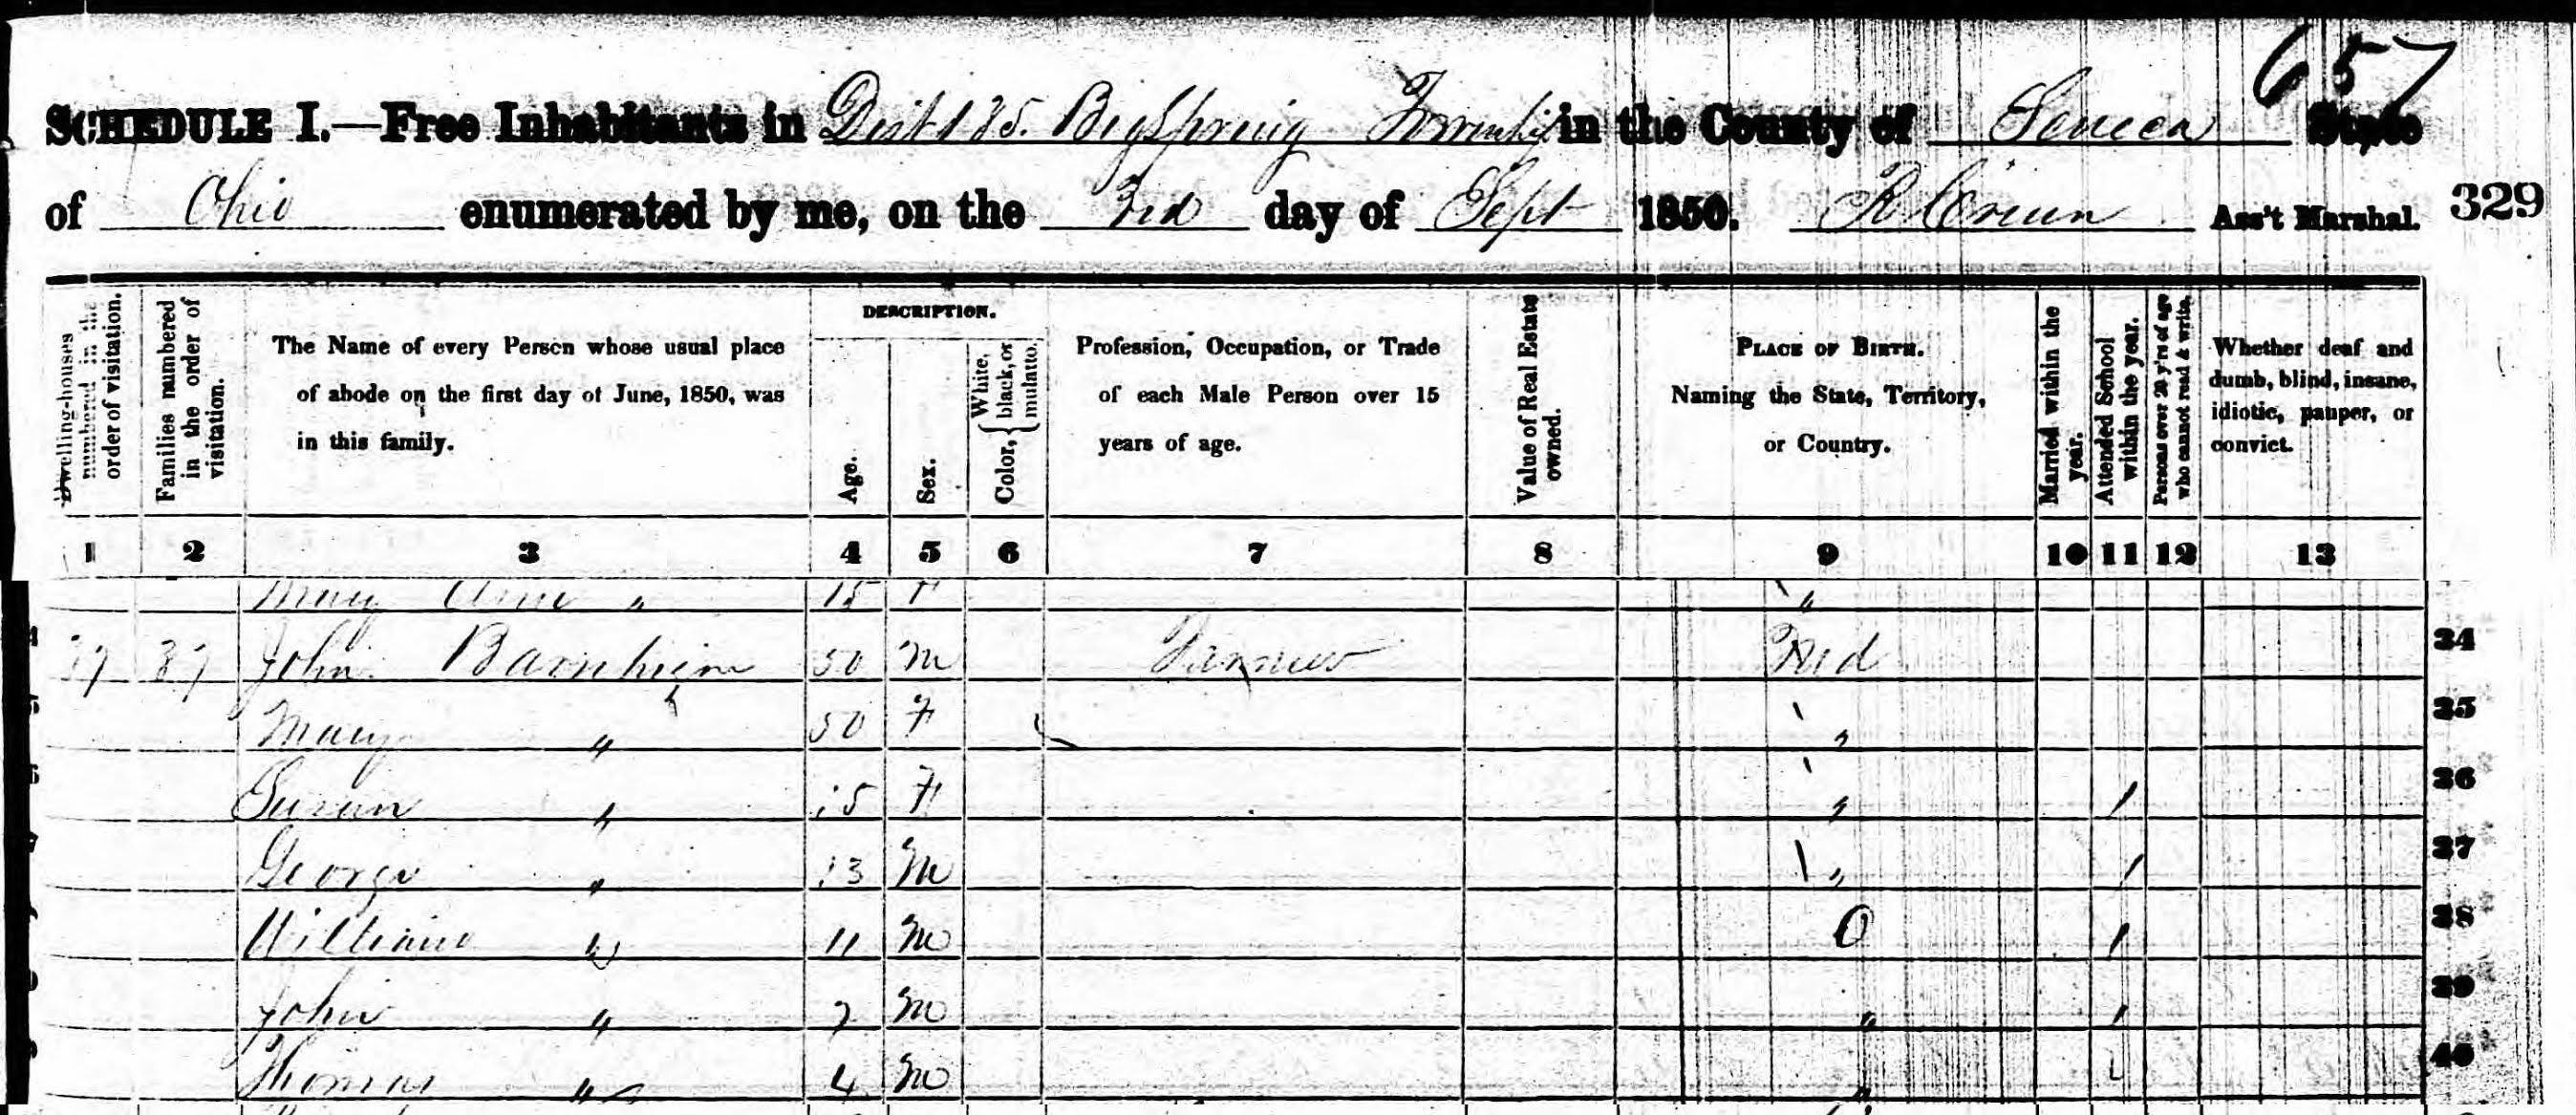 657
SCHEDULE I.—Free Inhabitants in Dist 135. Big Spring Township in the County of Seneca State
of Ohio enumerated by me, on the 3rd day of Sept 1850. Ass't Marshal. 329
Dwelling-houses numbered in the order of visitation.
Families numbered in the order of visitation.
The Name of every Person whose usual place of abode on the first day of June, 1850, was in this family.
DESCRIPTION.
Age.
Sex.
Color, { White, black, or mulatto.
Profession, Occupation, or Trade of each Male Person over 15 years of age.
Value of Real Estate owned.
PLACE OF BIRTH. Naming the State, Territory, or Country.
Married within the year.
Attended School within the year.
Persons over 20 y'rs of age who cannot read & write.
Whether deaf and dumb, blind, insane, idiotic, pauper, or convict.
1 2 3 4 5 6 7 8 9 10 11 12 13
Mary Ann " 15 F "
37 37 John Barnheim 50 M Farmer Md 34
Mary " 50 F " 35
Susan " 15 F " 1 36
George " 13 M " 1 37
William " 11 M O 1 38
John " 7 M " 1 39
Thomas " 4 M " 40